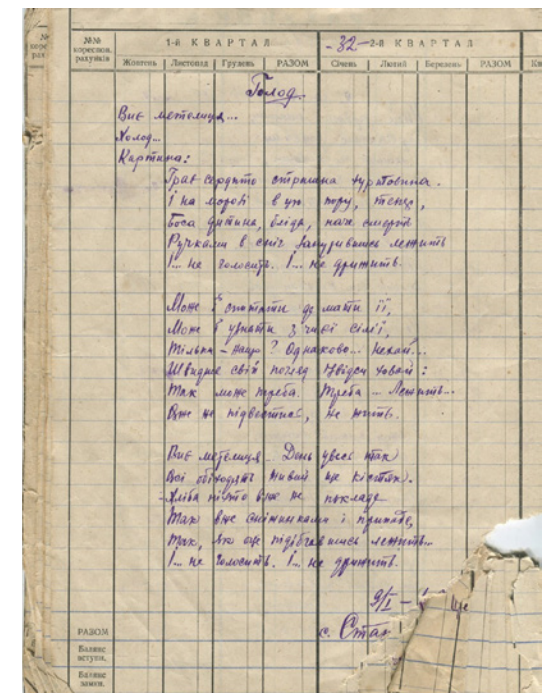 №№ кореспон. рахунків
1-й КВАРТАЛ
- 32 - 2-й КВАРТАЛ
Жовтень Листопад Грудень РАЗОМ Січень Лютий Березень РАЗОМ
Голод.
Виє метелиця...
Холод...
Картина:
Грає сердито страшна хуртовина.
І на морозі в ту пору, тепер,
Боса дитина, бліда, наче смерть
Ручками в сніг занурившись лежить
І... не голосить. І... не дрижить.
Може б спитати де мати її,
Може б узнати з чиєї сім'ї,
Тільки - нащо? Однаково... Нехай...
Швидше свій погляд звідси ховай:
Так може треба. Треба... Лежить...
Вже не підвестись, не жить.
Виє метелиця... День увесь так
Всі обходять живий ще кістяк.
- Хліба ніхто вже не покладе
Так вже сніжинками і припаде,
Так, як он підібгавшись лежить...
І... не голосить. І... не дрижить.
9/I -
с. Стак
РАЗОМ
Баланс вступн.
Баланс замов.